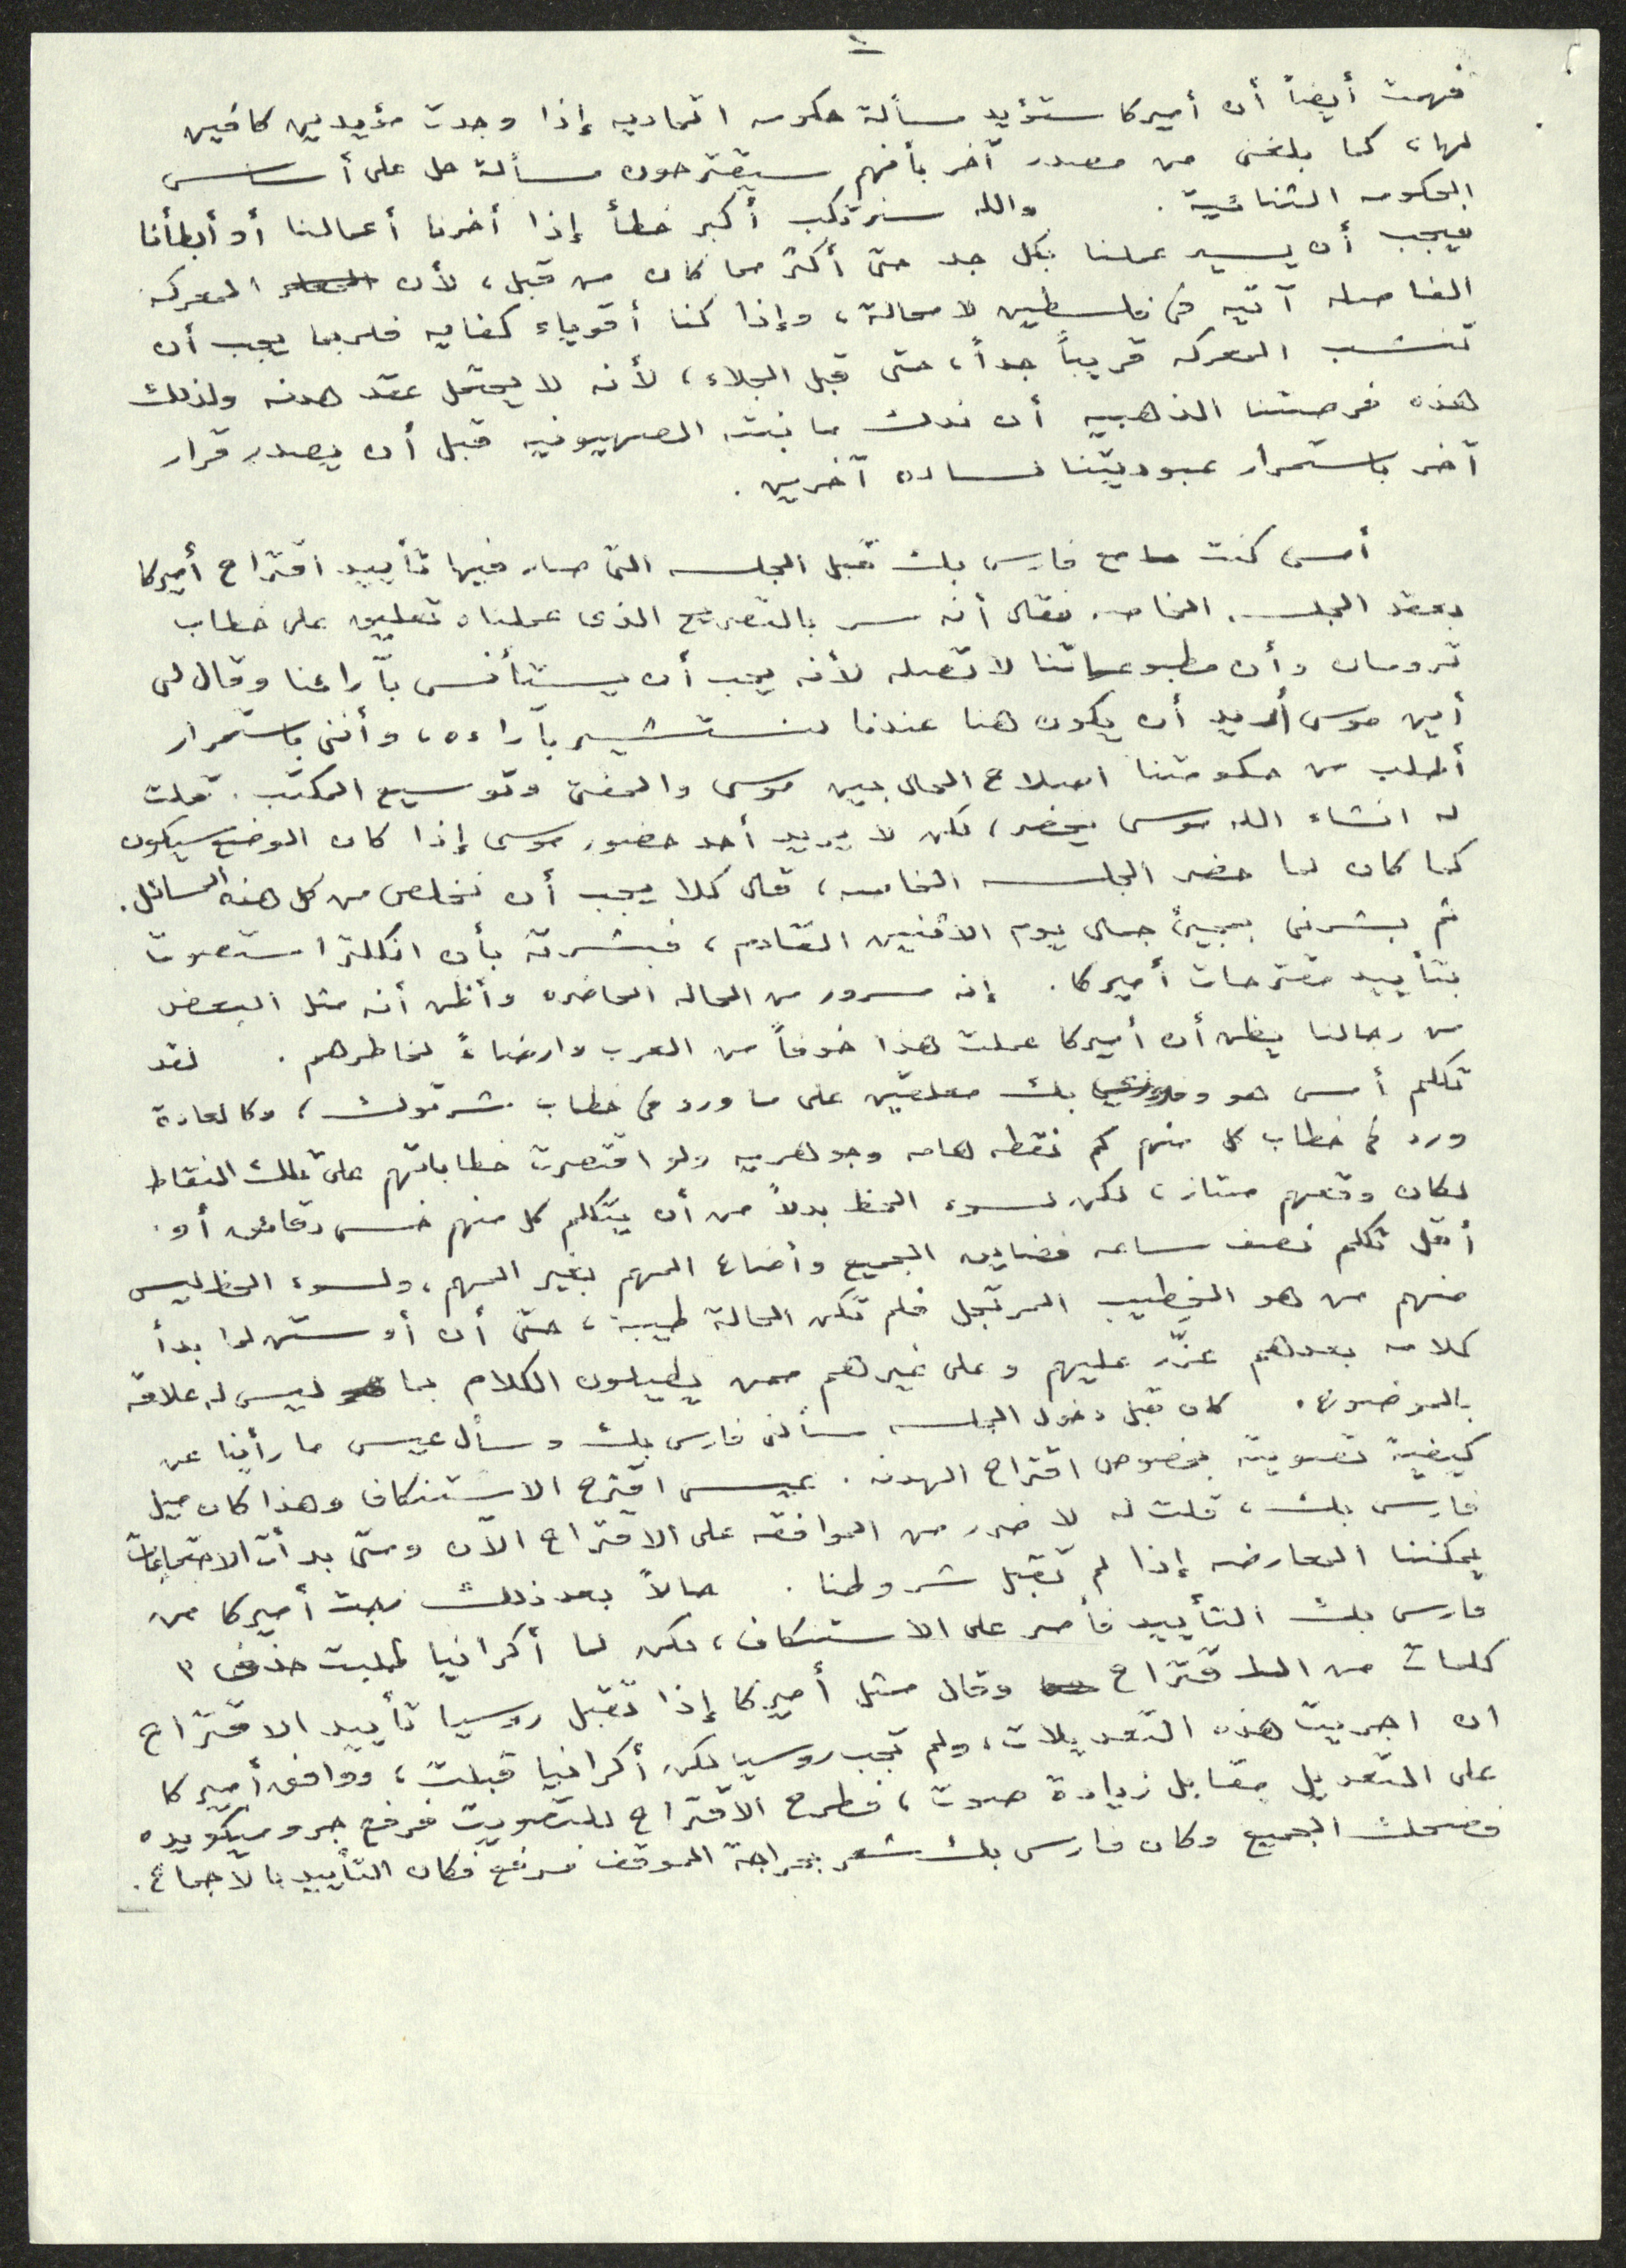 فهمت أيضاً أن أميركا ستؤيد مسألة حكومه اتحاديه إذا وجدت مؤيدين كافين
لها، كما بلغنى من مصدر آخر بأنهم سيقترحون مسألة حل على أساس
الحكومه الثنائية. والله سنرتكب أكبر خطأ إذا أخرنا أعمالنا أو أبطأنا
فيجب أن يسير عملنا بكل جد حتى أكثر مما كان من قبل، لأن المعركه
الفاصله آتيه فى فلسطين لا محالة، وإذا كنا أقوياء كفايه فلربما يجب أن
تنشب المعركه قريباً جداً، حتى قبل الجلاء، لأنه لا يحتمل عقد هدنه ولذلك
هذه فرصتنا الذهبيه أن ندك ما بنته الصهيونيه قبل أن يصدر قرار
آخر باستمرار عبوديتنا لساده آخرين.
أمس كنت مع فارس بك قبل الجلسه التى صار فيها تأييد اقتراح أميركا
بعقد الجلسه الخاصه فقال أنه سر بالتصريح الذى عملناه تعليق على خطاب
ترومان وأن مطبوعاتنا لا تصله لأنه يجب أن يستأنس بآرائنا وقال لى
أين موسى أريد أن يكون هنا عندنا لنستشير بآراءه، وأننى باستمرار
أطلب من حكومتنا اصلاح الحال بين موسى والمفتى وتوسيع المكتب. قلت
له انشاء الله موسى يحضر، لكن لا يريد أحد حضور موسى إذا كان الوضع سيكون
كما كان لما حضر الجلسه الخاصه، قال كلا يجب أن نخلص من كل هذه المسائل.
ثم بشرنى بمجيئ جمال يوم الاثنين القادم، فبشرته بأن انكلترا ستصوت
بتأييد مقترحات أميركا. إنه مسرور من الحاله الحاضره وأظن أنه مثل البعض
من رجالنا يظن أن أميركا عملت هذا خوفاً من العرب وارضاءً لخاطرهم. لقد
تكلم أمس هو وفوزي بك معلقين على ما ورد فى خطاب شرتوك، وكالعادة
ورد فى خطاب كل منهم كم نقطه هامه وجوهريه ولو اقتصرت خطاباتهم على تلك النقاط
لكان وقعهم ممتاز، لكن لسوء الحظ بدلاً من أن يتكلم كل منهم خمس دقائق أو
أقل تكلم نصف ساعه فضايق الجميع وأضاع المهم بغير المهم، ولسوء الحظ ليس
منهم من هو الخطيب المرتجل فلم تكن الحالة طيبة، حتى أن أوستن لما بدأ
كلامه بعدهم عزّر عليهم وعلى غيرهم ممن يطيلون الكلام بما ليس له علاقه
بالموضوع. كان قبل دخول الجلسه سألنى فارس بك وسأل عيسى ما رأينا عن
كيفية تصويته بخصوص اقتراح الهدنه. عيسى اقترح الاستنكاف وهذا كان ميل
فارس بك، قلت له لا ضرر من الموافقه على الاقتراح الآن ومتى بدأت الاجتماعات
يمكننا المعارضه إذا لم تقبل شروطنا. حالاً بعد ذلك رجت أميركا من
فارس بك التأييد فأصر على الاستنكاف، لكن لما أكرانيا طلبت حذف ٣
كلمات من الاقتراح وقال ممثل أميركا إذا تقبل روسيا تأييد الاقتراح
ان اجريت هذه التعديلات، ولم تجب روسيا لكن أكرانيا قبلت، ووافق أميركا
على التعديل مقابل زيادة صوت، فطرح الاقتراح للتصويت فرفع جروميكو يده
فضحك الجميع وكان فارس بك شعر بحراجة الموقف فرفع فكان التأييد بالاجماع.